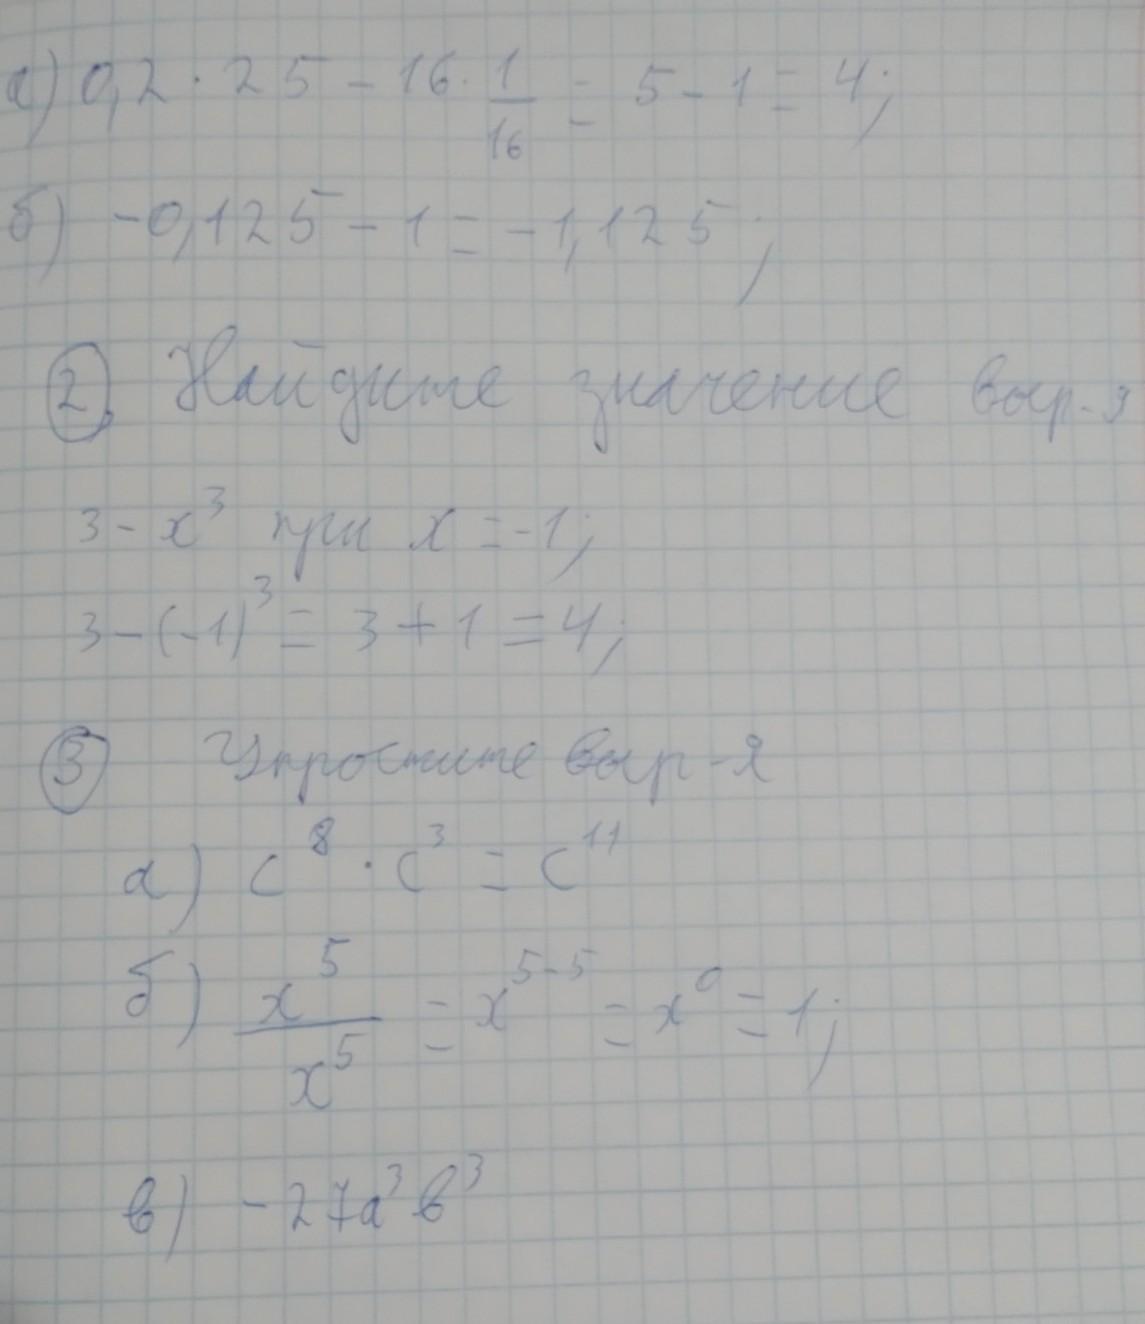 а) 0,2 · 25 - 16 · 1/16 = 5 - 1 = 4;
б) -0,125 - 1 = -1,125;
2. Найдите значение выр-я
3 - x³ при x = -1;
3 - (-1)³ = 3 + 1 = 4;
3 Упростите выр-я
а) c⁸ · c³ = c¹¹
б) x⁵/x⁵ = x⁵⁻⁵ = x⁰ = 1;
в) -27a³b³